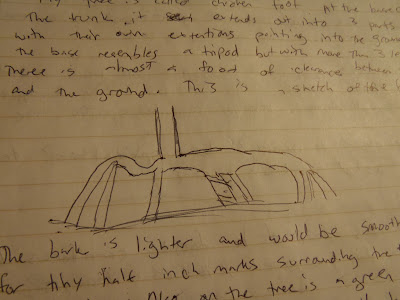 tree is called chicken foot at the base
The trunk it extends out into 3 parts
with their own extentions pointing into the groun
the base resembles a tripod but with more than 3 le
There is almost a foot of clearance between
and the ground. This is a sketch of the
The bark is lighter and would be smooth
for tiny half inch marks surrounding the
on the tree is a green